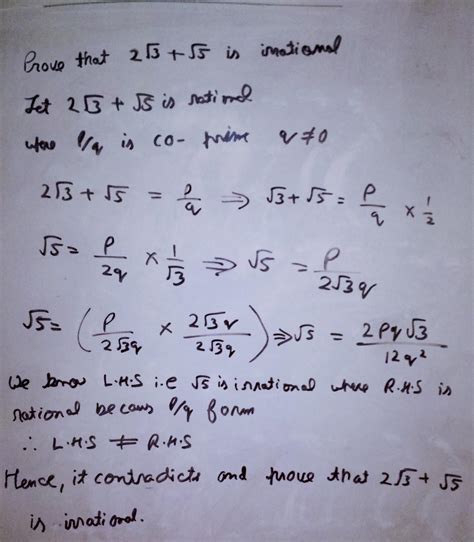 Prove that 2√3 + √5 is irrational
Let 2√3 + √5 is rational
where P/q is co-prime q ≠ 0
2√3 + √5 = P/q ⇒ √3 + √5 = P/q × 1/2
√5 = P/2q × 1/√3 ⇒ √5 = P/2√3q
√5 = (P/2√3q × 2√3q/2√3q) ⇒ √5 = 2Pq√3/12q²
We know L.H.S i.e √5 is irrational where R.H.S is
rational becaus P/q form
∴ L.H.S ≠ R.H.S
Hence, it contradicts and prove that 2√3 + √5
is irrational.